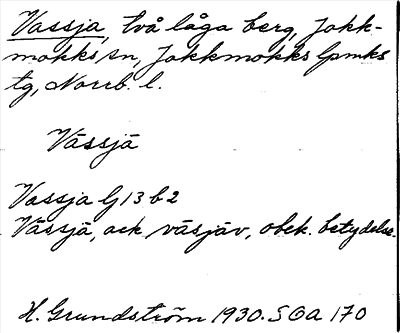 Vassja, två låga berg, Jokk-
mokks sn, Jokkmokks lpmks
tg, Norrb. l.
Vássjá
Vassja Gj 13 b 2
Vássjá, ack vásjáv, obek. betydelse.
H. Grundström 1930. SOA 170